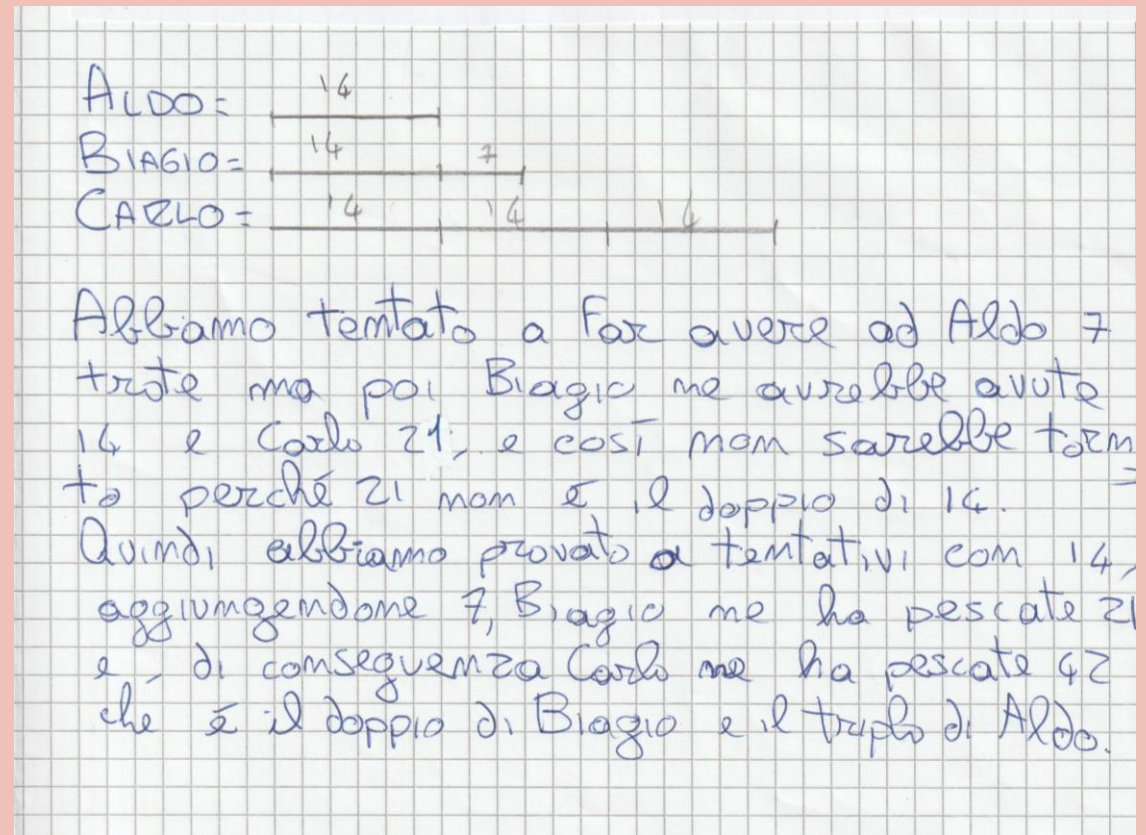 ALDO= 14
BIAGIO= 14 7
CARLO= 14 14 14
Abbiamo tentato a far avere ad Aldo 7
trote ma poi Biagio ne avrebbe avute
14 e Carlo 21, e così non sarebbe torn
to perché 21 non è il doppio di 14.
Quindi abbiamo provato a tentativi con 14,
aggiungendone 7, Biagio ne ha pescate 21
e, di conseguenza Carlo ne ha pescate 42
che è il doppio di Biagio e il triplo di Aldo.